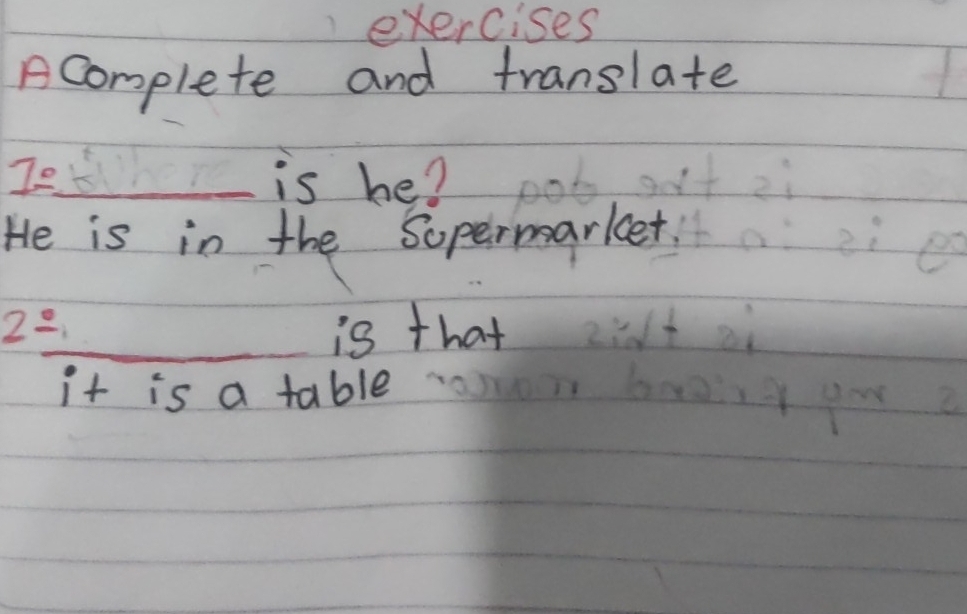 exercises
A Complete and translate
1º Where is he?
He is in the Supermarket.
2º. is that
it is a table